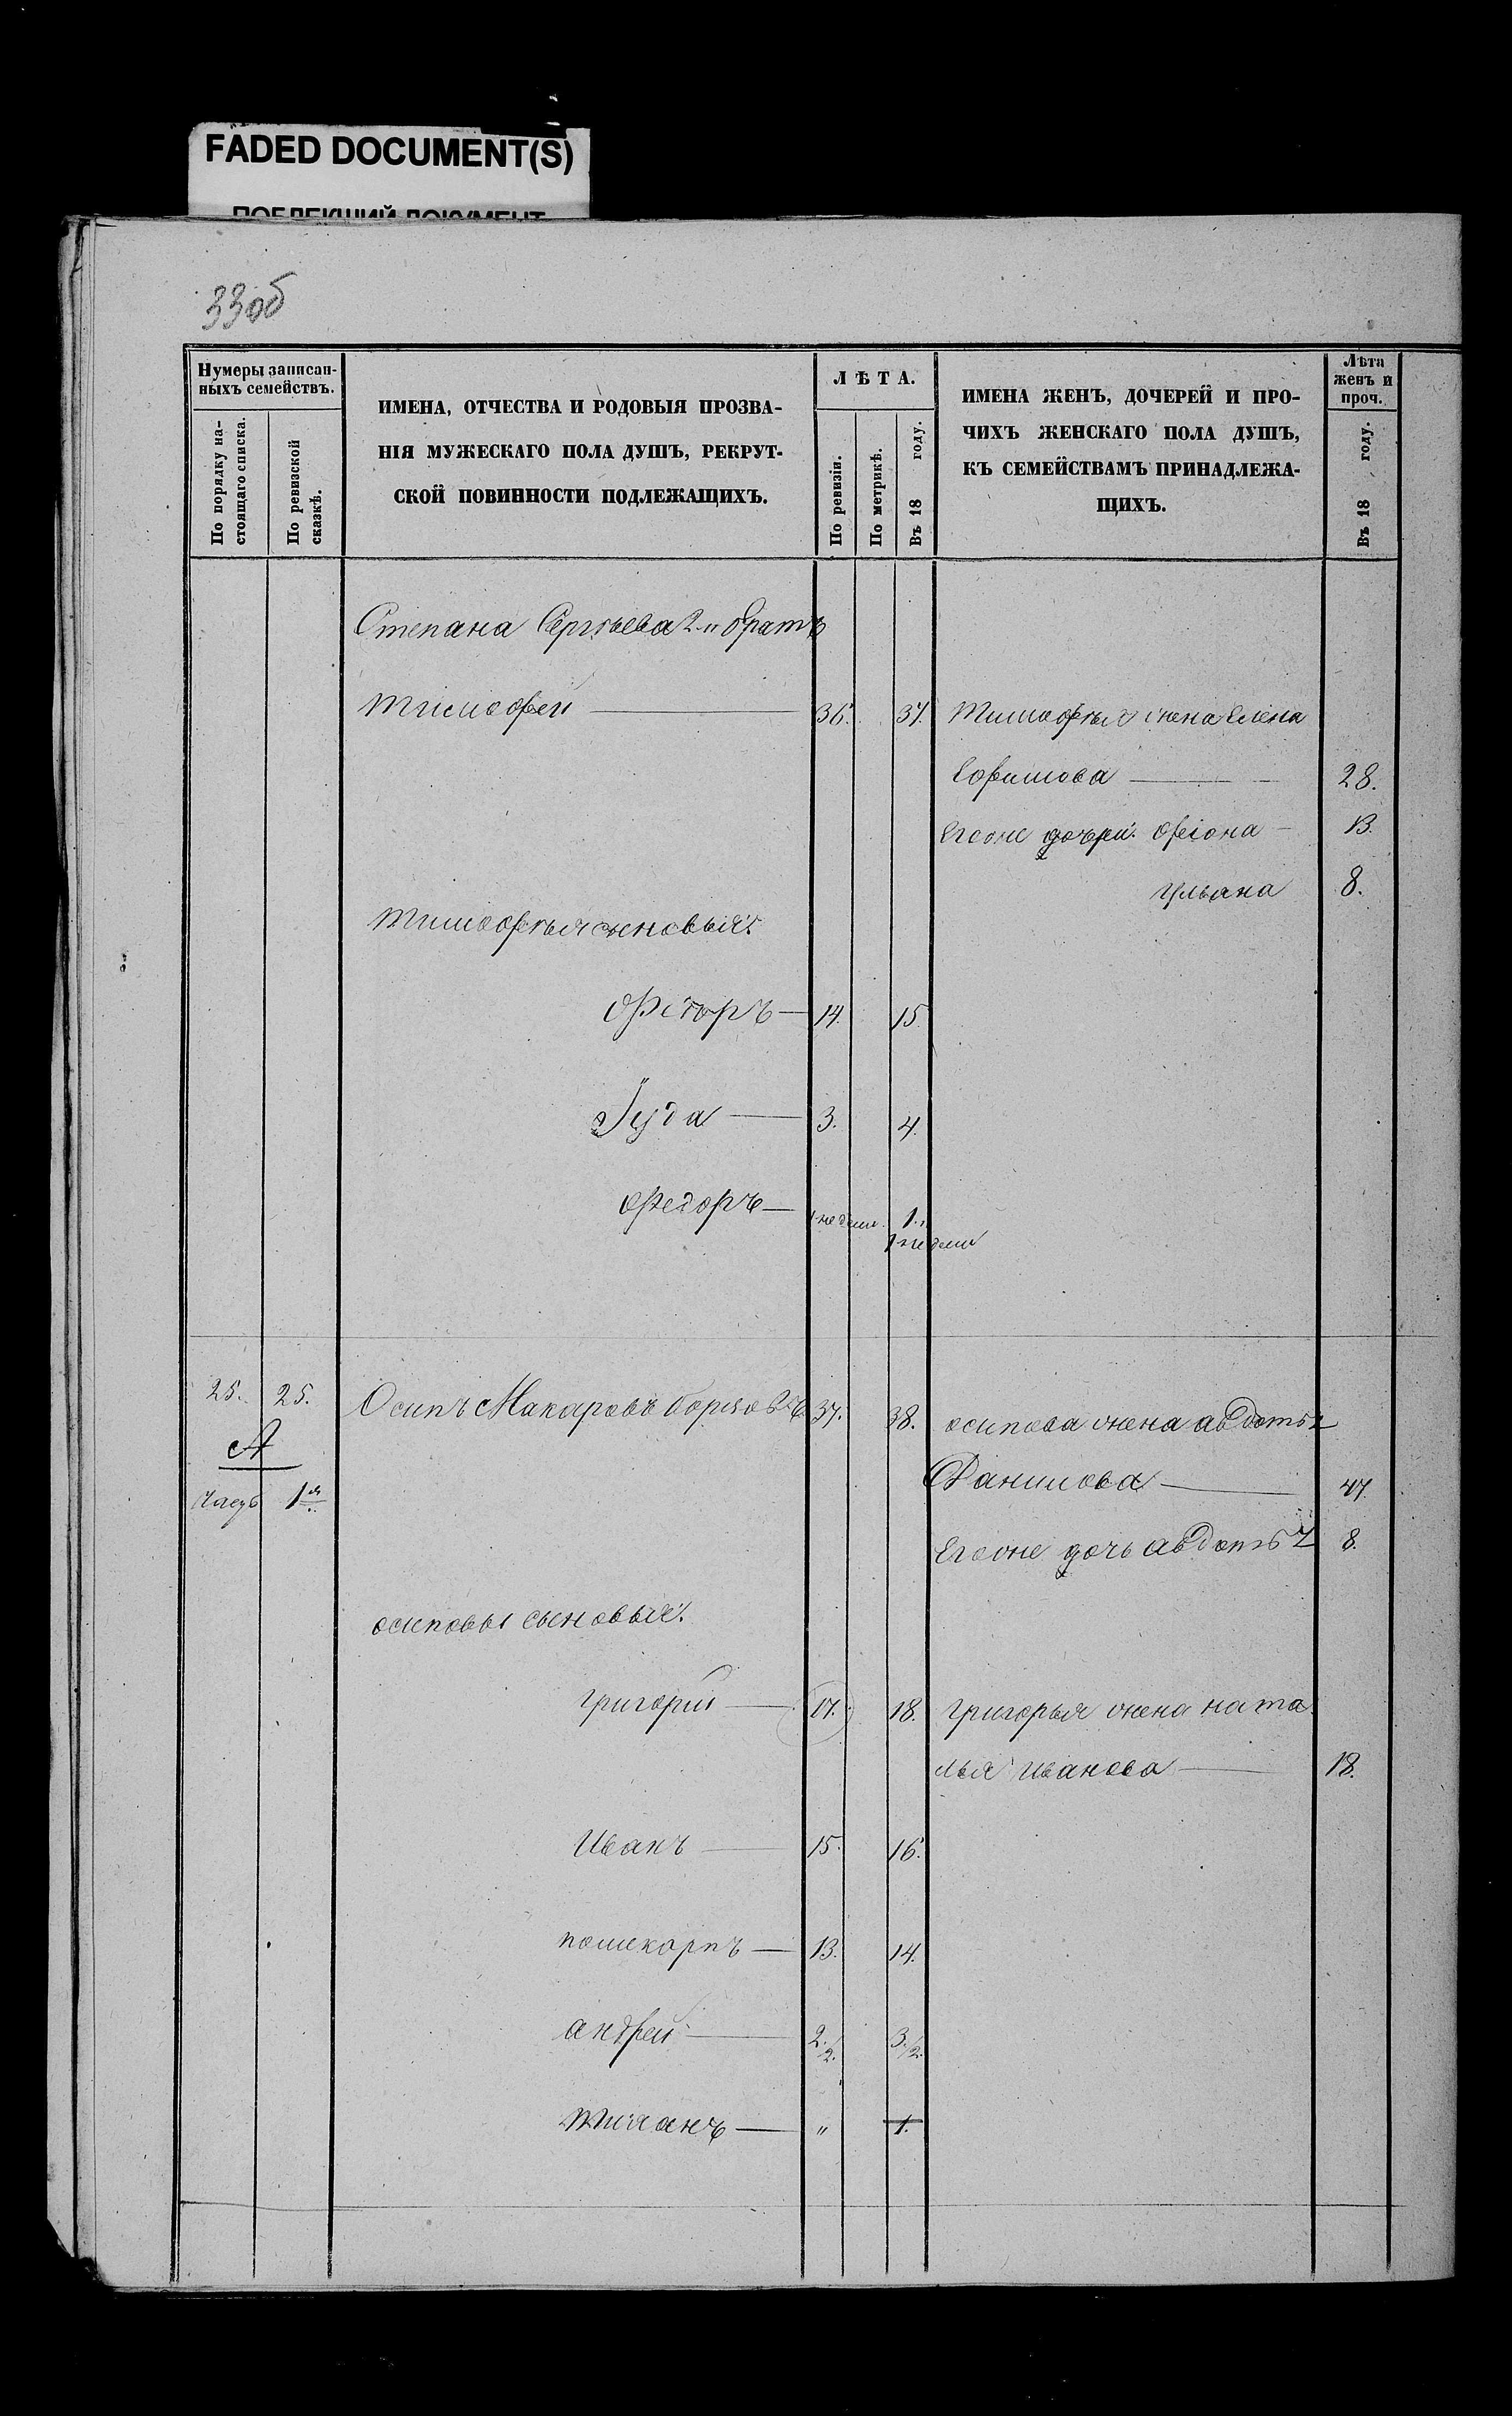 FADED DOCUMENT(S)
ПОБЛЕКШИЙ ДОКУМЕНТ
33об
Нумеры записан-
ныхъ семействъ.
По порядку на-
стоящаго списка.
По ревизской
сказкѣ.
ИМЕНА, ОТЧЕСТВА И РОДОВЫЯ ПРОЗВА-
НІЯ МУЖЕСКАГО ПОЛА ДУШЪ, РЕКРУТ-
СКОЙ ПОВИННОСТИ ПОДЛЕЖАЩИХЪ.
ЛѢТА.
По ревизіи.
По метрикѣ.
Въ 18 году.
ИМЕНА ЖЕНЪ, ДОЧЕРЕЙ И ПРО-
ЧИХЪ ЖЕНСКАГО ПОЛА ДУШЪ,
КЪ СЕМЕЙСТВАМЪ ПРИНАДЛЕЖА-
ЩИХЪ.
Лѣта
женъ и
проч.
Въ 18 году.
Степана Сергѣева 2й братъ
Тимофей — 36. 37. Тимофѣя жена Елена
Ефимова — 28.
Егоже дочри: 13.
Ульяна 8.
Тимофѣя сыновья:
14. 15.
Іуда — 3. 4.
Федоръ — недели. 1.
недели
25. 25. Осипъ Макаровъ 37. 38. осипова жена авдотья
А
Данилова — 47.
1я
Егоже дочь авдотья 8.
осиповы сыновья:
григорий — 17. 18. григорья жена ната
лья иванова — 18.
Иванъ — 15. 16.
поликарпъ — 13. 14.
андрей — 2 1/2. 3 1/2.
— " 1.